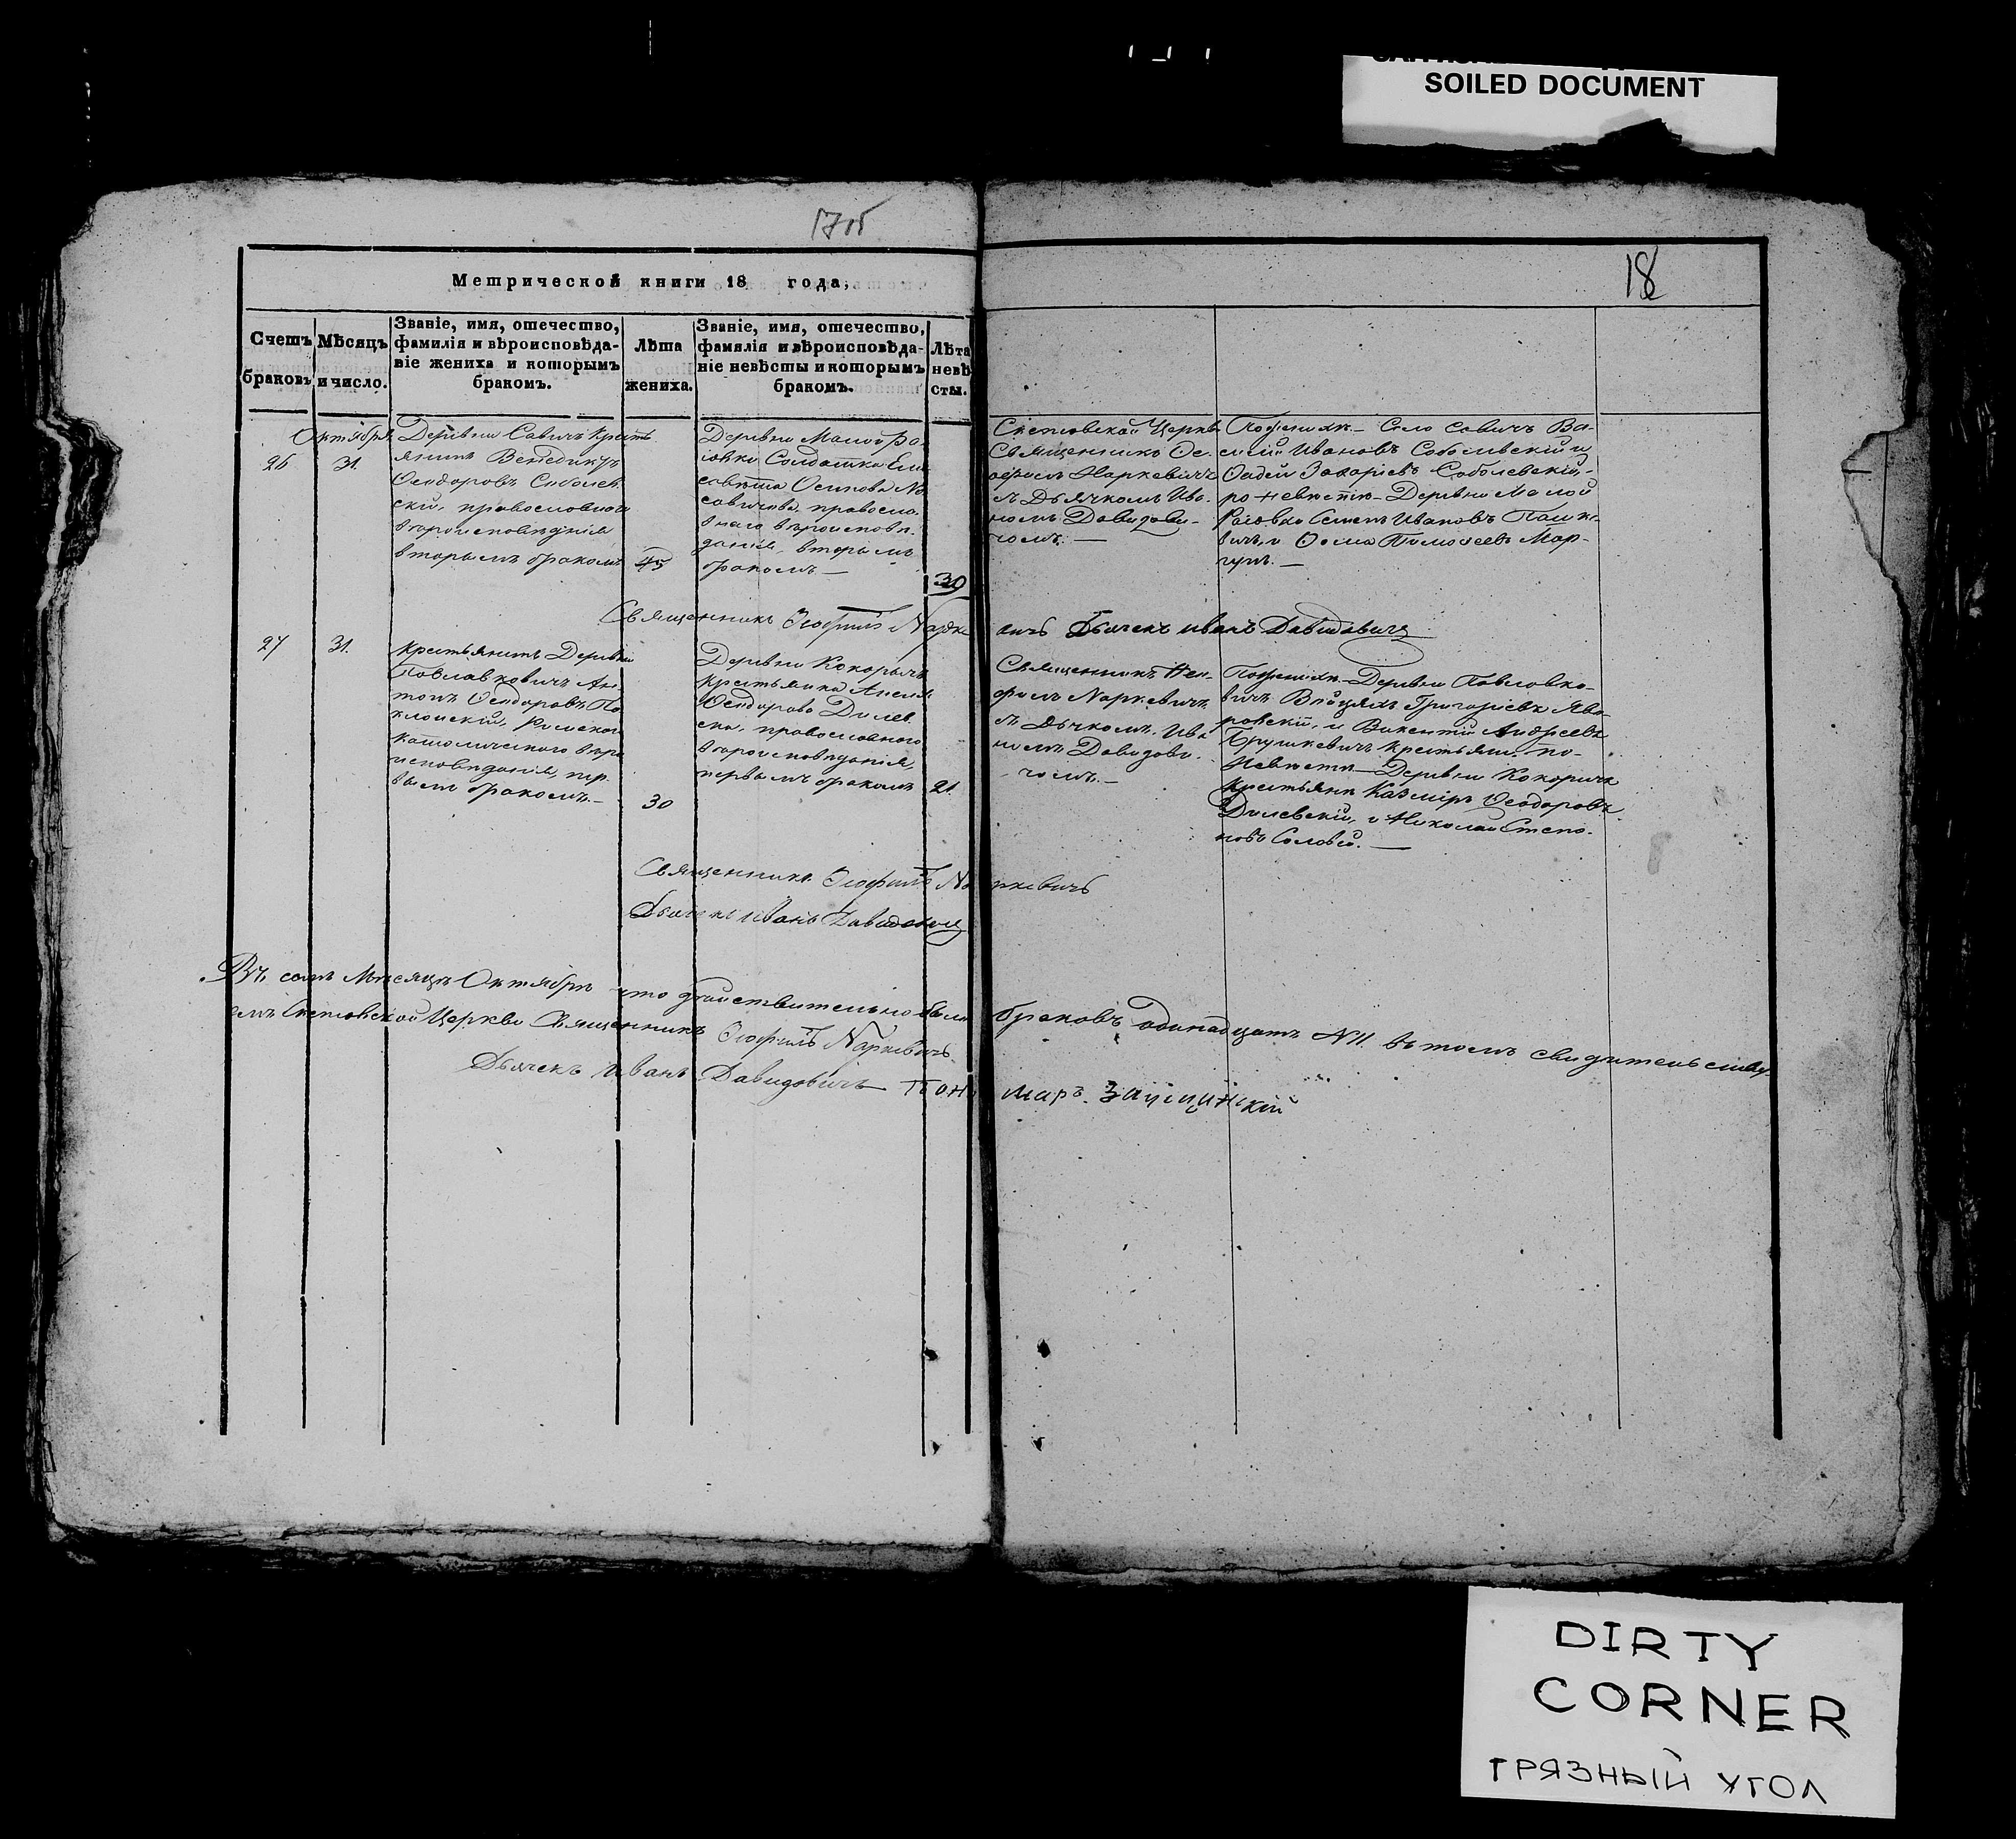 SOILED DOCUMENT
18
Метрической книги 18 года,
Счетъ браковъ
Мѣсяцъ и число.
Званіе, имя, отечество,
фамилія и вѣроисповѣда-
віе жениха и которымъ
бракомъ.
Лѣта
жениха.
Званіе, имя, отечество,
фамилія и вѣроисповѣда-
ніе невѣсты и которымъ
бракомъ.
Лѣта
невѣ
сты.
Октября
26
31
Деревни Савичъ Кресть
янинъ Венедиктъ
Ѳеодоровъ Соболев
скій, православнаго
вѣроисповѣданія
вторымъ бракомъ
45
Деревни Малой Ра
іовки Солдатка Ели
савѣта Осипова
православ
наго вѣроисповѣ
данія, вторымъ
бракомъ —
30
Церкви
Священникъ Ѳе-
офилъ Наркевичъ
съ Дьячкомъ Ива-
номъ Давидови-
чомъ. —
По женихѣ — Село Савичъ Ва-
силій Ивановъ Соболевскій и
Фадей Захаріевъ Соболевскій,
по невѣстѣ — Деревни Малой
Раіовки Семенъ Ивановъ
и Ѳома Тимоѳеевъ Мар-
Священникъ Ѳеофилъ Наркевичъ Дьячекъ Иванъ Давидовичъ
27
31.
Крестьянинъ Деревни
Павлавковичъ Ан-
тонъ Ѳеодоровъ По
клонскій, Римско
католическаго вѣро
исповѣданія, пер
вымъ бракомъ. —
30
Деревни Кокорычъ
крестьянка Анеля
Ѳеодорова Дилев
ска, православного
вѣроисповѣданія,
первымъ бракомъ
21.
Священникъ
филъ Наркевичъ
съ Дьячкомъ Ива
номъ Давидови-
чомъ. —
По женихѣ — Деревни Павловко-
вичъ Войцехъ Григоріевъ Яво-
ровскій, и Викентій Андреевъ
Грушкевичъ крестьяни, по
Невѣсти — Деревни Кокорычъ
Крестьяни Казміръ Ѳеодоровъ
Дилевскій, и Николай Степа-
новъ Соловей. —
Священникъ Ѳеофилъ Наркевичъ
Дьячекъ Иванъ Давидовичъ
Въ семъ Мѣсяцѣ Октябрѣ что дѣйствительно было браковъ одинадцать N11. въ томъ свидѣтельству-
емъ Церкви Священникъ Ѳеофилъ Наркевичъ
Дьячекъ Иванъ Давидовичъ Понамаръ
DIRTY
CORNER
ГРЯЗНЫЙ УГОЛ